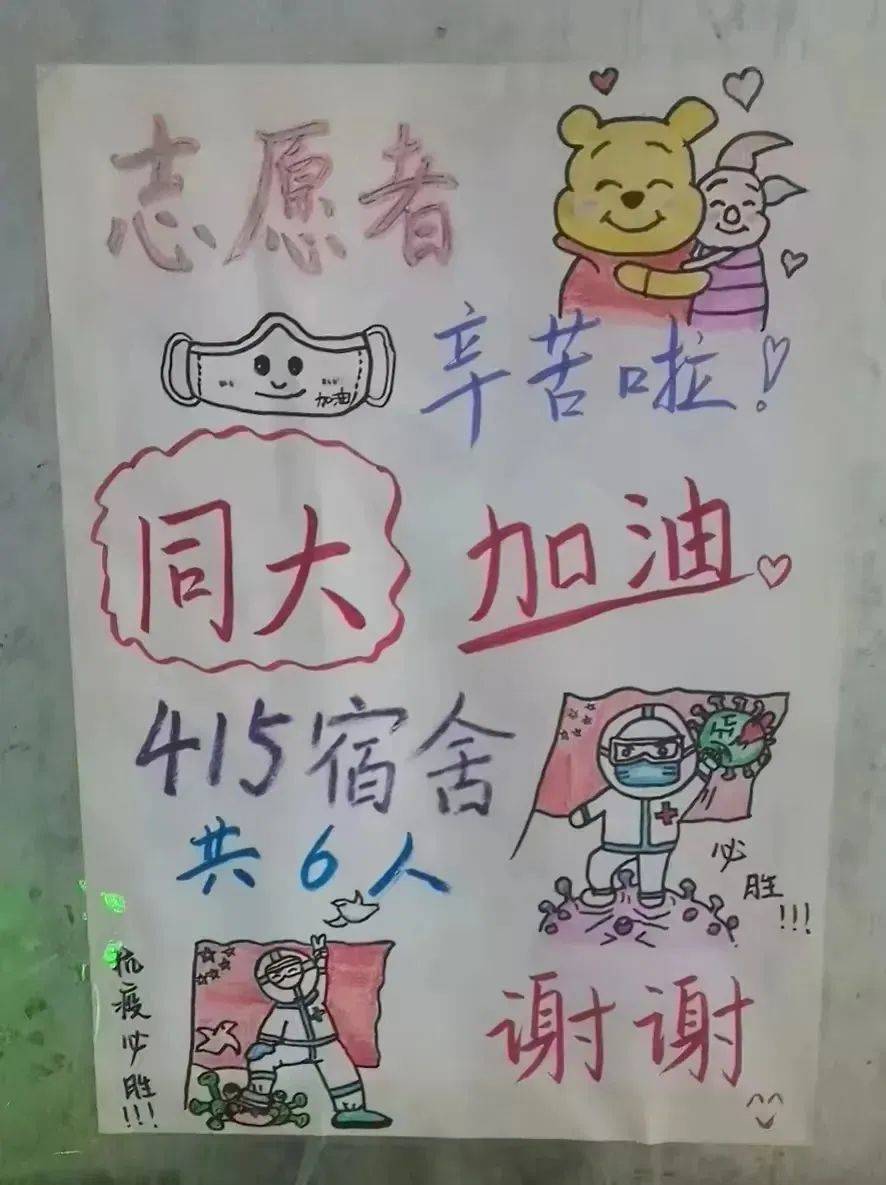 志愿者
辛苦啦!
加油
同大 加油
415宿舍
共6人
必胜!!!
抗疫必胜!!!
谢谢